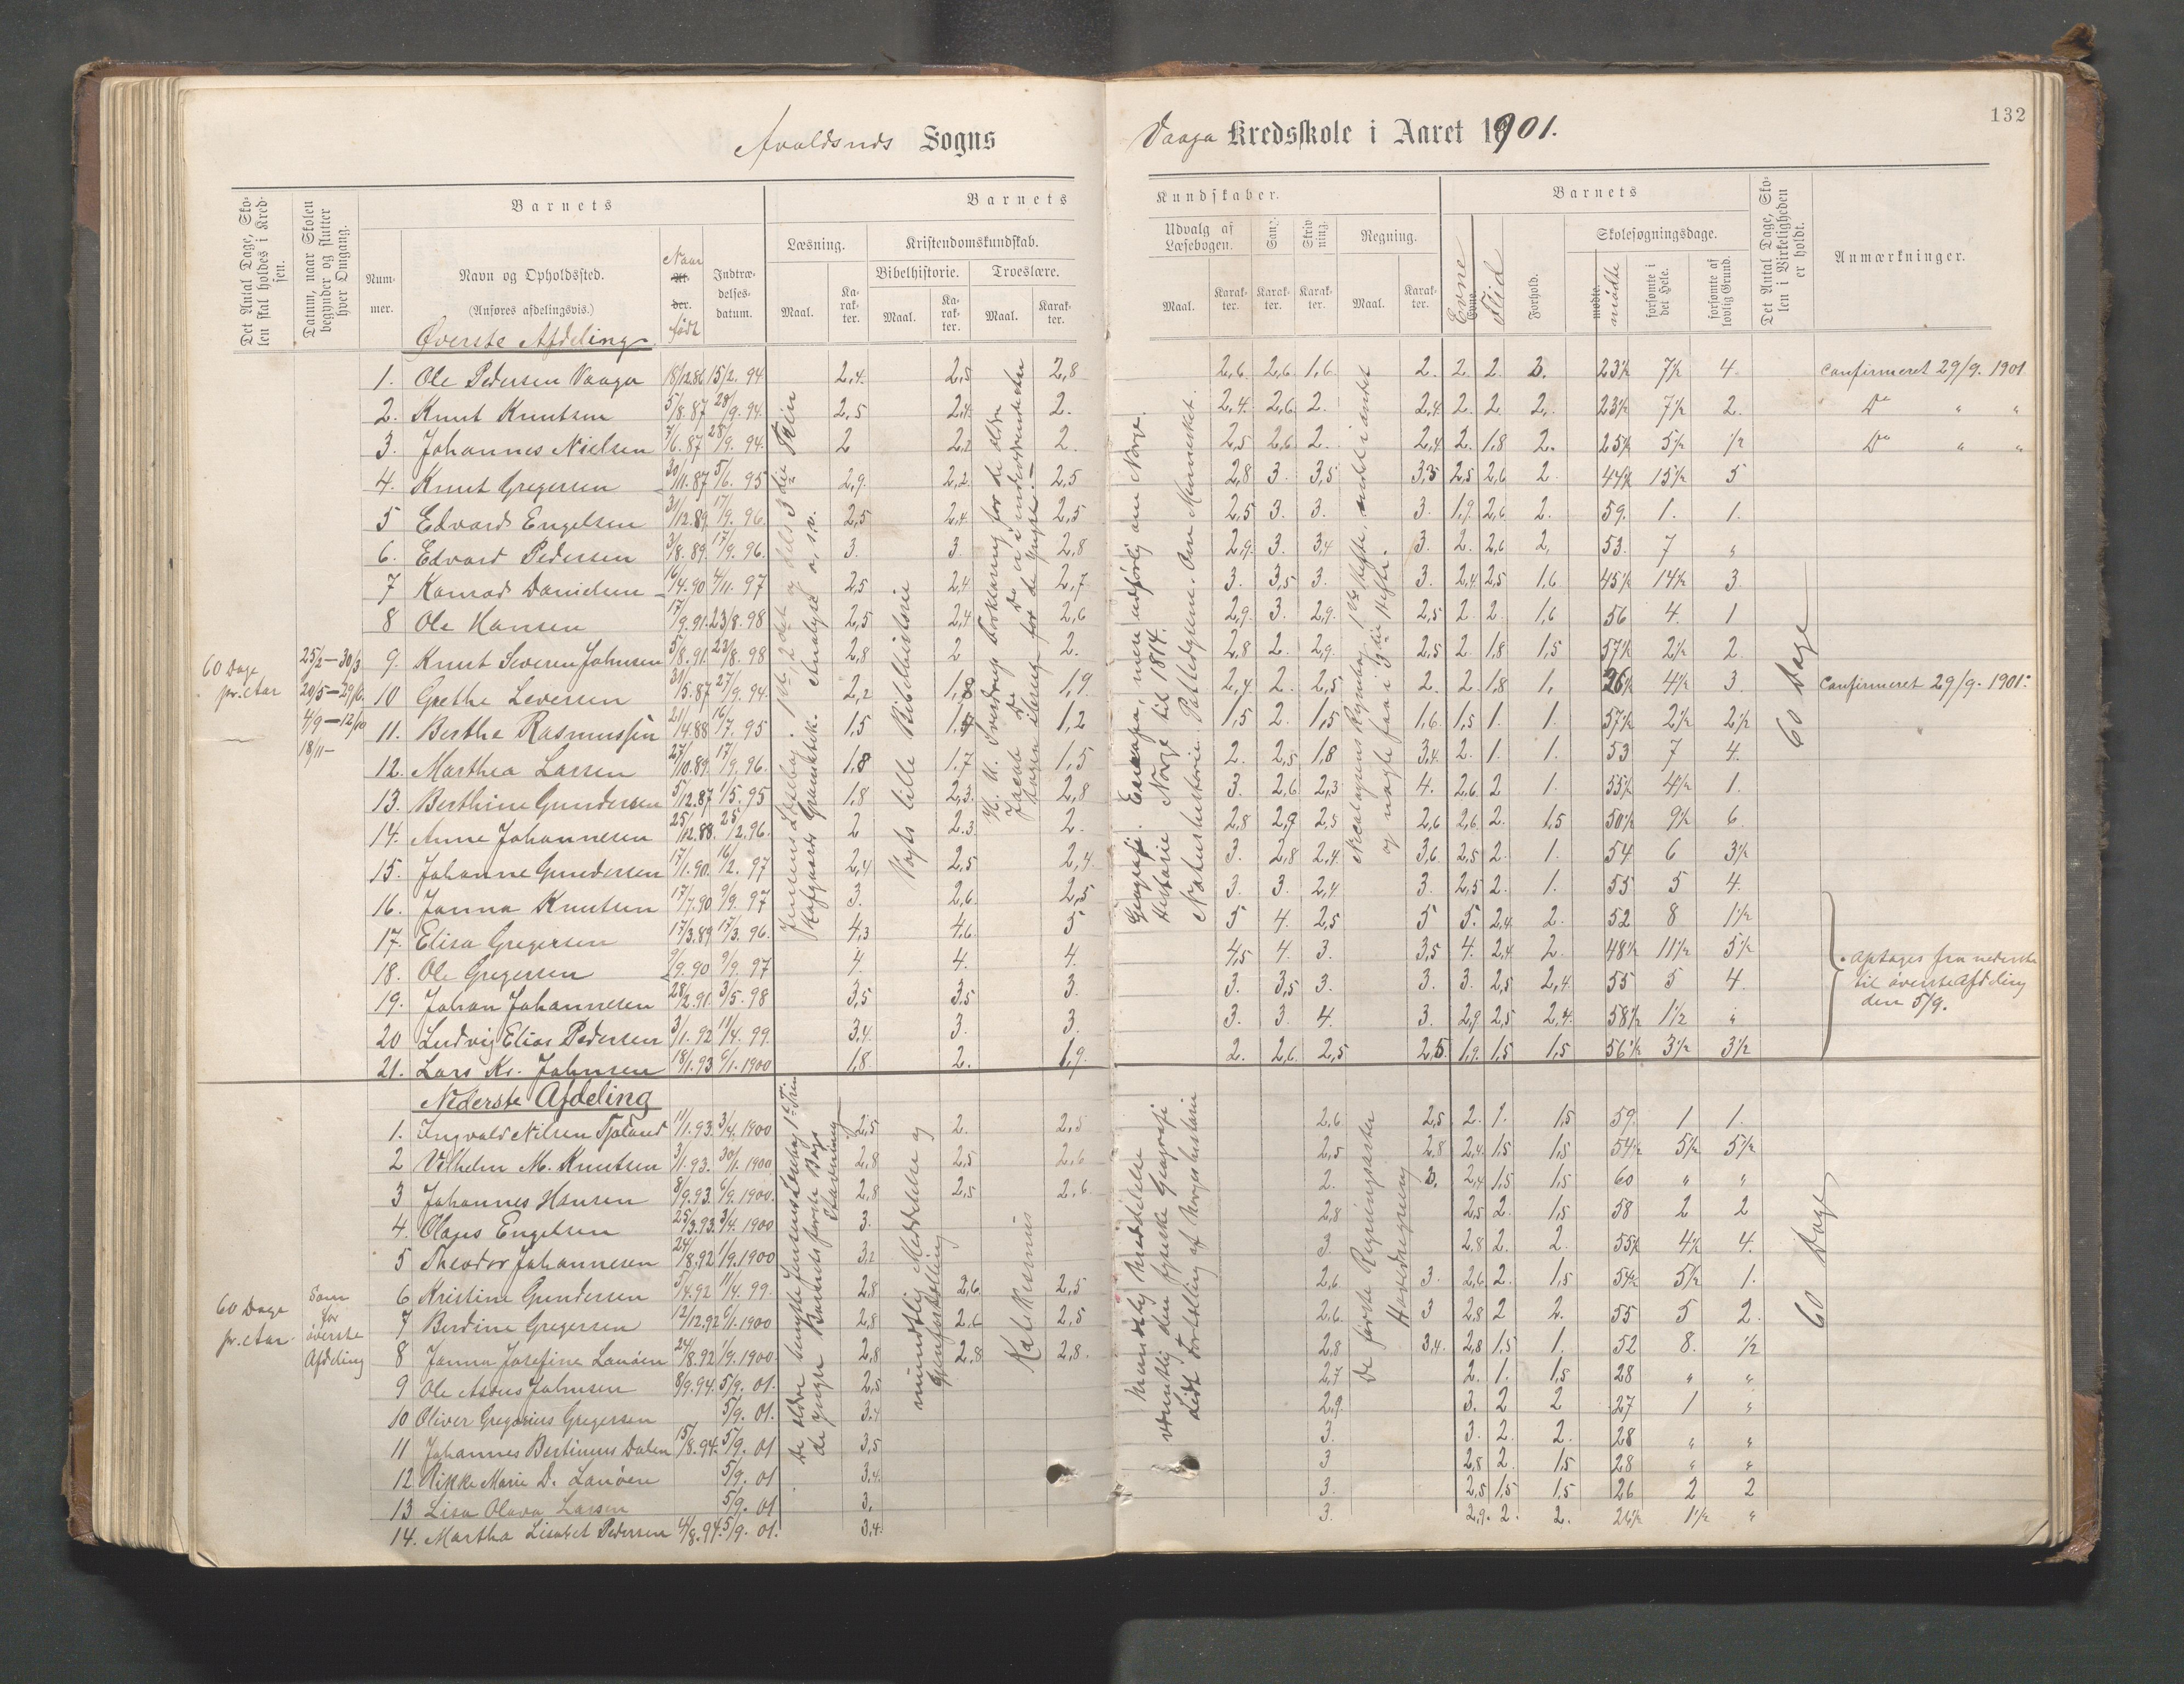 132
Avaldsnes Sogns
Vaaga Kredsskole i Aaret 1901.
Det Antal Dage, Skolen skal holdes i Kredsen.
Datum, naar Skolen begynder og slutter hver Omgang.
Barnets
Nummer.
Navn og Opholdssted.
(Anføres afdelingsvis.)
Naar født
Indtrædelsesdatum.
Barnets
Læsning.
Maal.
Karakter.
Kristendomskundskab.
Bibelhistorie.
Maal.
Karakter.
Troeslære.
Maal.
Karakter.
Kundskaber.
Udvalg af Læsebogen.
Maal.
Karakter.
Sang.
Karakter.
Skrivning.
Karakter.
Regning.
Maal.
Karakter.
Barnets
Evne
Flid
Forhold.
Skolesøgningsdage.
mødte
forsømte i det Hele.
forsømte af lovlig Grund.
Det Antal Dage, Skolen i Virkeligheden er holdt.
Anmærkninger.
Øverste Afdeling
1. Ole Pedersen Vaaga 18/12.86 15/2. 94 2,4. 2,5 2,8 2,6. 2,6 1,6 2. 2. 2. 2. 23½ 7½ 4 Confirmeret 29/9. 1901
2. Knut Knutsen 5/8.87 28/9. 94. 2,5 2,4. 2. 2,4. 2,6. 2. 2,4. 2. 2. 2. 23½ 7½ 2. Do " "
3. Johannes Nielsen 7/6.87 28/9. 94. 2 2,2 2. 2,5 2,6 2. 2,4 2. 1,8 2. 25½ 5½ ½ Do " "
4. Knut Gregersen 30/11.87 5/6. 95 2,9. 2,2. 2,5 2,8 3. 3,5 3,5 2,5 2,6 2. 44½ 15½ 5
5 Edvard Engelsen 31/12.89. 17/9. 96. 2,5 2,4. 2,5 2,5 3. 3. 3. 1,9. 2,6. 2. 59. 1. 1.
6. Edvard Pedersen 3/8.89. 17/9. 96. 3. 3. 2,8 2,9. 3. 3,4 3. 2. 2,6 2, 53. 7 "
7 Konrad Danielsen 16/4.90 4/11. 97 2,5 2,4 2,7 3. 3,5 3. 3. 2,4 2,5 1,6 45½ 14½ 3
8 Ole Hansen 17/9.91. 23/8.98 2,5 2,4 2,6 2,9. 3. 2,9. 2,5 2. 2. 1,6 56 4. 1
9. Knut Severen Johnsen 5/8.91. 23/8. 98 2,8 2 2. 2,8 2. 2,9. 2,5 2. 1,8 1,5 57½ 2½ 2.
10 Grethe Leversen 31/5.87 27/9. 94. 2,2 1,8 1,9 2,4 2. 2,5 2. 2. 1,8 1, 26½ 4½ 3. Confirmeret 29/9. 1901.
11. Berthe Rasmussen 21/9.88 16/7. 95 1,5 1,5 1,2 1,5 2. 1,5 1,6. 1,5 1. 1. 57½ 2½ 2½
12. Marthea Larsen 27/10.89. 17/9. 96. 1,8 1,7 1,5 2. 2,5 1,8 3,4. 2. 1. 1. 53 7 4.
13. Berthine Gundersen 5/12.87 1/5. 95 1,8 2,3. 2,8 3. 2,6 2,3 4. 2,6. 2 1. 55½ 4½ 1.
14. Anne Johannesen 25/12.88. 25/2.96. 2 2.3 2. 2,8 2,9 2,5 2,6 2,6. 2. 1,5 50½ 9½ 6.
15. Johanne Gundersen 17/1.90. 16/2. 97 2,4 2,5 2,4. 3. 2,8 2,4. 3,6. 2,5 2. 1. 54 6 3½
16. Janna Knutsen 17/7.90 9/9. 97 3. 2,6 2,5 3. 3. 2,4 3. 2,5 2. 1. 55 5 4.
17. Elisa Gregersen 17/3.89 17/3. 96. 4,3 4,6. 5 5 4. 2,5 5 5. 2,4. 2. 52 8 1½
18. Ole Gregersen 9/9.90 9/9. 97 4. 4. 4. 4,5 4. 3. 3,5 4. 2,4 2. 48½ 11½ 5½
19. Johan Johannesen 28/2.91. 3/5. 98 3,5 3,5 3. 3. 3,5 3. 3. 3. 2,5 2,4. 55 5 4.
20 Ludvig Elias Pedersen 3/1.92 11/4. 99. 3,4. 3. 3. 3. 3. 4. 3. 2,9 2,5 2,4. 58½ 1½ "
21. Lars Kr. Johnsen 18/1.93 6/1.1900 1,8. 2. 1,9. 2. 2,6. 2,5 2,5. 1,9. 1,5 1,5 56½ 3½ 3½
60 Dage
pr. Aar
25/2—30/3
20/5—29/6.
4/9—12/10
18/11—
Jensens Læsebog. 1ste, 2det og dels 3die Trin
Hofgaards Gramatik. Analyse o.s.v.
Vogts lille Bibelhistorie
H. U. Sverdrups Forklaring for de ældre
Geografi. Europa, mere udførlig om Norge.
Historie Norge til 1814.
Naturhistorie. Pattedyrene. Om Mennesket.
Nicolaysens Regnebog 1ste Hefte, endel i andet
og nogle faa i 3die Hefte.
60 Dage
optages fra nederste
til øverste Afdeling
den 5/9.
Nederste Afdeling
1. Ingvald Nilsen Tjøland 11/1.93. 3/4.1900 2,5 2. 2,5 2,6 2,5 2. 1. 1,5 59. 1 1.
2 Vilhelm M. Knutsen 3/1.93. 30/1.1900 2,8 2,5 2,6 2,5 2,8 2,4 1,5 1,5 54½ 5½ 5½
3 Johannes Hansen 8/9.93. 6/9.1900. 2,8 2,5 2.6. 2. 3. 2,4 1,5 1,5 60 " "
4. Olaus Engelsen 25/3.93. 3/4.1900 3. 2,8 2,5 2. 1,5 58 2 2
5 Theodor Johannesen 24/8.92 1/9.1900 3,2 3. 2,8 2. 2. 55½ 4½ 4.
6 Kristine Gundersen 5/4.92 11/4. 99. 2,8 2,6 2,5 2,6. 3. 2,6. 2. 1,5 54½ 5½ 1.
7 Berdine Gregersen 12/12.92 6/1.1900 2,8 2,6 2,5 2,6. 3 2,8 2 2. 55 5 2.
8 Janna Josefine Lanøen 24/8.92 1/9.1900. 2,8 2,8 2,8. 2,8 3,4. 2,8 1,5 1. 52 8. ½
9 Ole Asbus Johnsen 8/9.94. 5/9. 01. 2,5 2,7 2. 1. 1,5 28 " "
10 Oliver Gregorius Gregersen 5/9. 01. 3,4 2,9. 3. 2 2 27 1 "
11 Johannes Bertinius Dalen 15/8.94. 5/9. 01 3,5 3. 3. 2. 2. 28 " "
12 Rikke Marie D. Lanøen 5/9. 01 3,4. 3 2,5 2. 1,5 28 " "
13 Lisa Olava Larsen 5/9. 01 3. 3. 2,5 1,5 1,5 26 2 2
14. Martha Lisabet Pedersen 4/8.94. 5/9. 01. 3,4. 3. 2,9. 2. 2. 26½ 1½ "
60 Dage
pr. Aar.
Som
for
øverste
Afdeling
De ældre benytte Jensens Læsebog 1ste Trin
de yngre Barnets første Bog
Stavning
mundtlig Meddelelse og
Gjenfortælling
Katekismus
Mundtlig Meddelelse
væsentlig den fysiske Geografi
Lidt Fortælling af Norgeshistorie
De første Regningsarter
Hovedregning
60 Dage